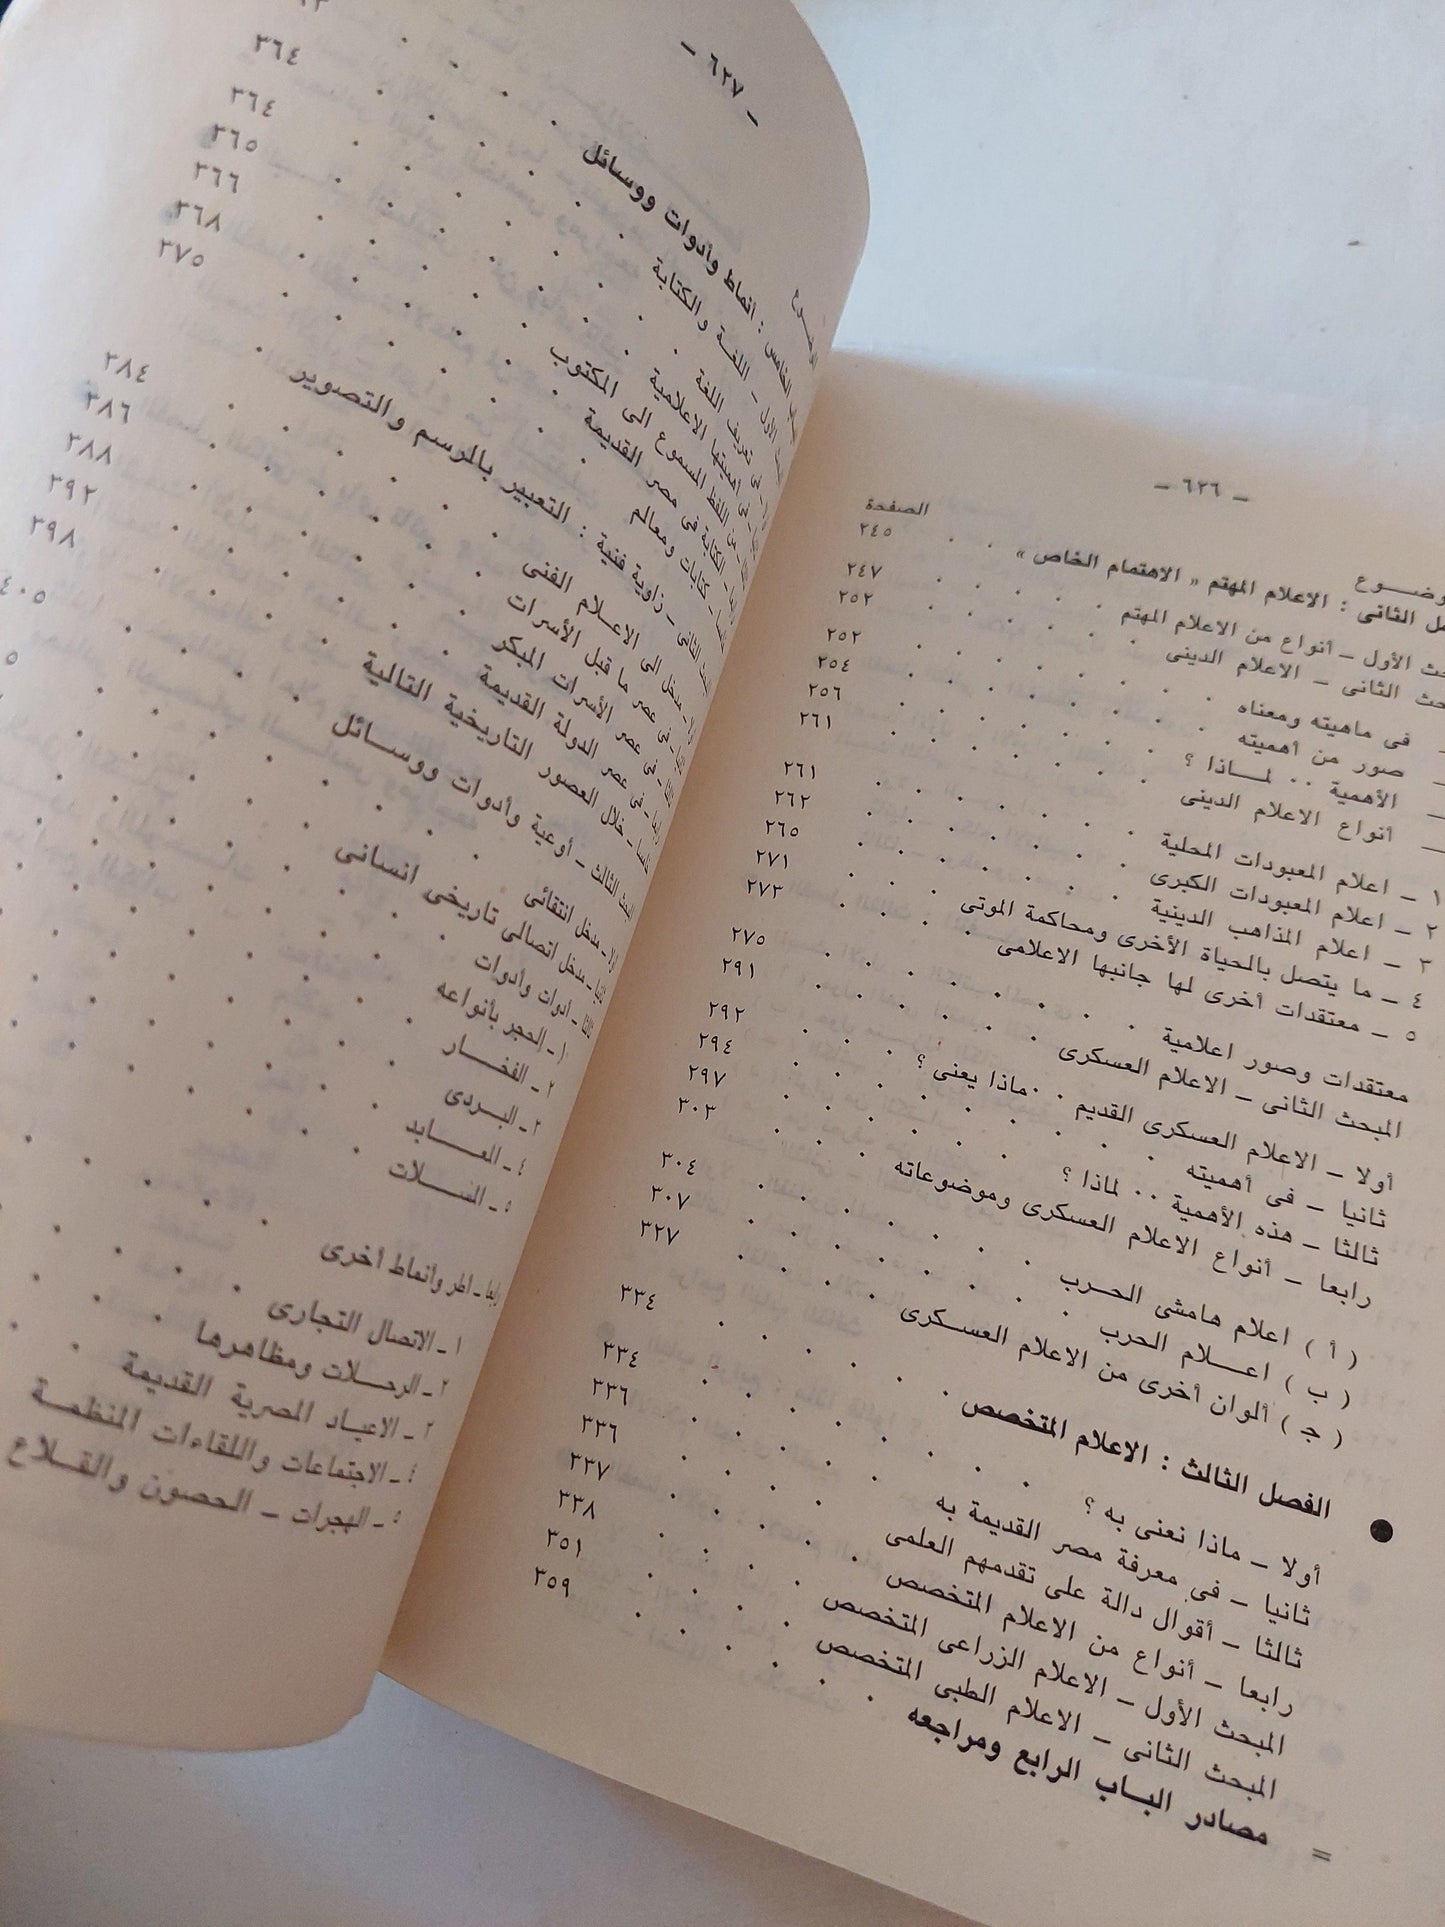 ـ ٦٢٦ ـ
الصفحة
الثانى : الاعلام المهتم « الاهتمام الخاص » ٢٤٥
الأول ـ أنواع من الاعلام المهتم ٢٤٧
الثانى ـ الاعلام الدينى ٢٥٢
ـ فى ماهيته ومعناه ٢٥٢
ـ صور من أهميته ٢٥٤
ـ الأهمية ٠٠ لمـاذا ؟ ٢٥٦
ـ أنواع الاعلام الدينى ٢٦١
١ ـ اعلام المعبودات المحلية ٢٦١
٢ ـ اعلام المعبودات الكبرى ٢٦٢
٣ ـ اعلام المذاهب الدينية ٢٦٥
٤ ـ ما يتصل بالحياة الأخرى ومحاكمة الموتى ٢٧١
٥ ـ معتقدات أخرى لها جانبها الاعلامى ٢٧٣
معتقدات وصور اعلامية ٢٧٥
المبحث الثانى ـ الاعلام العسكرى ٢٩١
أولا ـ الاعلام العسكرى القديم ٠٠ ماذا يعنى ؟ ٢٩٢
ثانيا ـ فى أهميته ٢٩٤
ثالثا ـ هذه الأهمية ٠٠ لماذا ؟ ٢٩٧
رابعا ـ أنواع الاعلام العسكرى وموضوعاته ٣٠٣
( أ ) اعلام هامشى الحـرب ٣٠٤
( ب ) اعـلام الحرب ٣٠٧
( جـ ) ألوان أخرى من الاعلام العسـكرى ٣٢٧
● الفصل الثالث : الاعلام المتخصص ٣٣٤
أولا ـ ماذا نعنى به ؟ ٣٣٤
ثانيا ـ فى معرفة مصر القديمة به ٣٣٦
ثالثا ـ أقوال دالة على تقدمهم العلمى ٣٣٦
رابعا ـ أنواع من الاعلام المتخصص ٣٣٧
المبحث الأول ـ الاعلام الزراعى المتخصص ٣٣٨
المبحث الثانى ـ الاعلام الطبى المتخصص ٣٥١
= مصادر البـاب الرابع ومراجعه ٣٥٩
ـ ٦٢٧ ـ
الخامس : انماط وأدوات ووسائل
الأول ـ اللغـة والكتابة ٣٦٤
فى تعريف اللغة ٣٦٤
فى أهميتها الاعلامية ٣٦٥
من اللفظ المسموع الى المكتوب ٣٦٦
ـ الكتابة فى مصر القديمة ٣٦٨
ـ كتابات ومعالم ٣٧٥
الثانى ـ زاوية فنية : التعبير بالرسم والتصوير
ـ مدخل الى الاعـلام الفنى ٣٨٤
ـ فى عصر ما قبل الأسرات ٣٨٦
ـ فى عصر الأسرات المبكر ٣٨٨
ـ فى عصر الدولة القديمة ٣٩٢
ـ خلال العصور التاريخية التالية ٣٩٨
الثالث ـ أوعية وأدوات ووسـائل ٤٠٥
ـ مدخل انتقائى
ـ مدخل اتصالى تاريخى انسانى
ـ أدوات وأدوات
١ ـ الحجر بأنواعه
٢ ـ الفخـار
٣ ـ البـردى
٤ ـ المعـابد
٥ ـ المسـلات
رابعا ـ أطر وأنماط أخرى
١ ـ الاتصال التجارى
٢ ـ الرحـلات ومظاهرها
٣ ـ الاعياد المصرية القديمة
٤ ـ الاجتماعات واللقاءات المنظمـة
٥ ـ الهجرات ـ الحصون والقـلاع